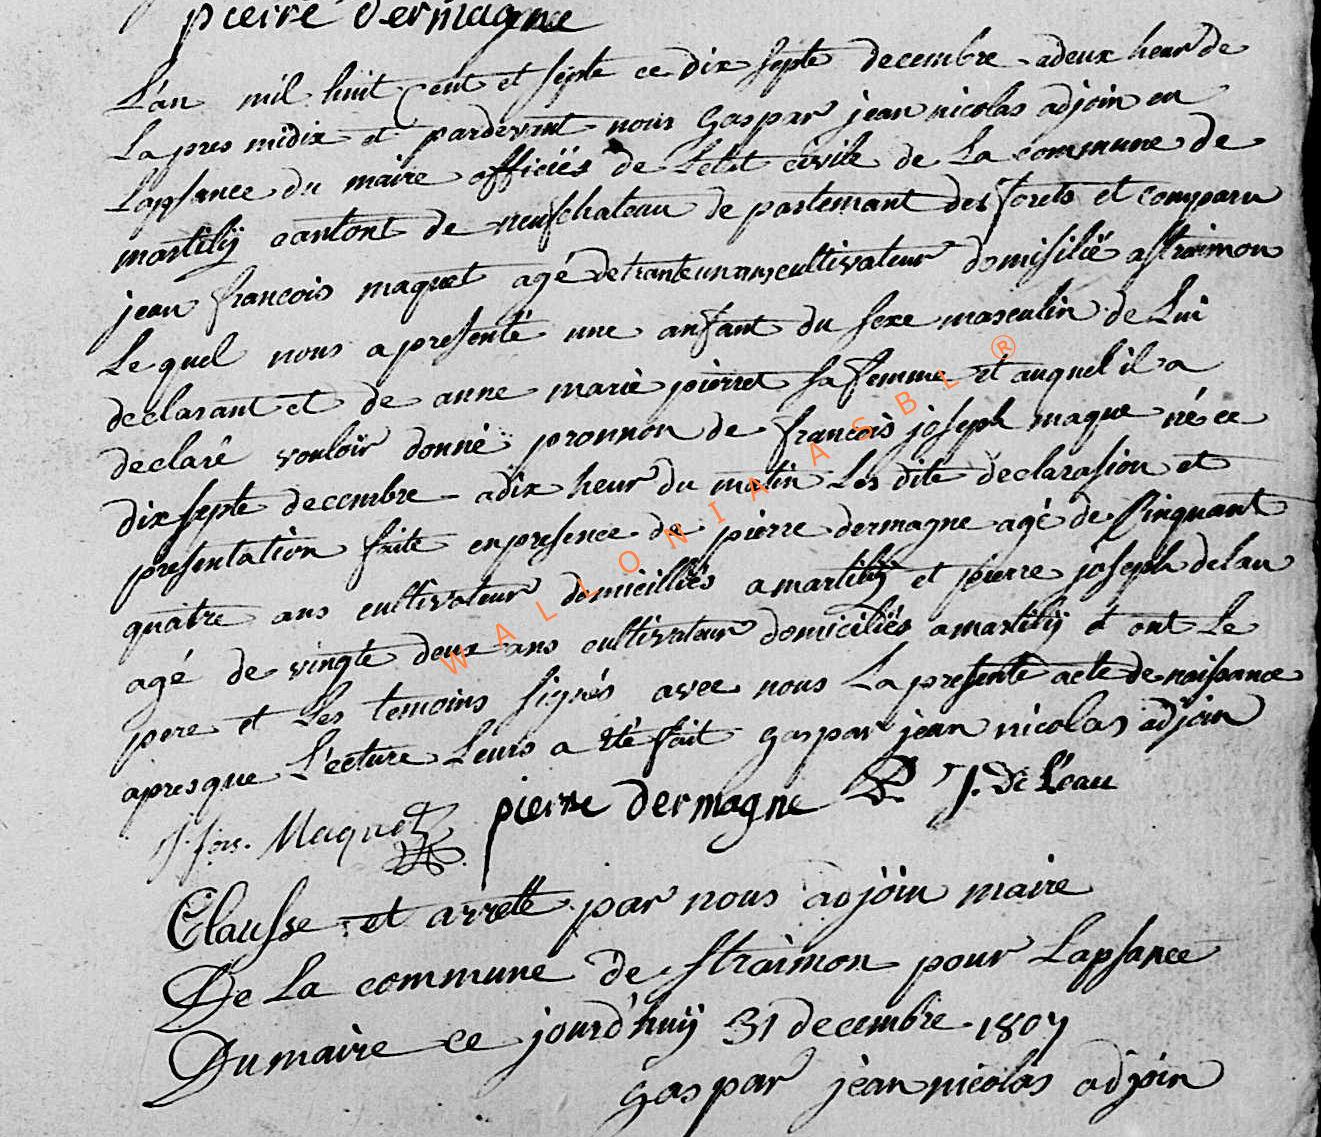 pierre dermagne
L'an mil huit Cent et septe ce dix septe decembre adeux heur de
Lapres midix et pardevant nous gaspar jean nicolas adjoin en
Lapsance du maire officiés de Letat civile de La commune de
martilÿ cantont de neufchateau de partemant des forets et comparu
jean francois maquet agé detranteunans cultivateur domisilié astraimon
Le quel nous a presenté une anfant du sexe masculin de Lui
declarant et de anne marie pierret sa femme et auquel il a
declaré vouloir donné pronnon de francois joseph maque né ce
dix septe decembre adix heur du matin Les dite declarasion et
presentation faite enpresence de pierre dermagne agé de Cinquant
quatre ans cultivateur domicilliés amartilÿ et pierre joseph delau
agé de vingte deux ans cultivateur domiciliés amartilÿ et ont Le
pere et Les temoins signés avec nous La presente acte de naissance
apresque L'ecture Leurs a eté fait gaspar jean nicolas adjoin
J. fois. Maquet pierre dermagne P. J. de L'eau
Clausse et arrette par nous adjoin maire
De La commune de straimon pour Lapsance
Dumaire ce jourd'huÿ 31 decembre 1807
gaspar jean nicolas adjoin
WALLONIA ASBL ®